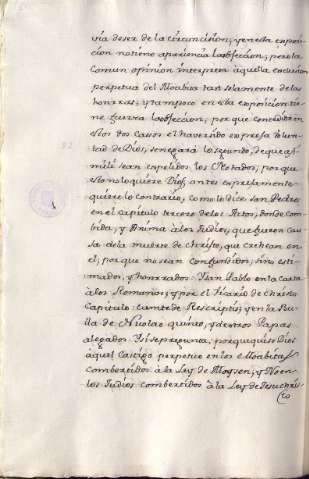 via de ser de la circuncision, y en esta exposi-
cion no tiene apariencia la obfeccion, pero la
comun opinion interpreta aquella exclusion
perpetua del Moabita tan solamente de las
honrras, y tampoco en esta exposicion tie-
ne fuerza la obfeccion, por que concedido en
estos dos casos el haver sido expresa volun-
tad de Dios, se negará lo segundo, de que a si-
mili sean expelidos los Notados, por que
esto no lo quiere Dios, antes expresamente
quiere lo contrario, como lo dice san Pedro
en el capitulo tercero de los Actos, donde com-
bida, y Anima à los Judios, que fueron cau-
sa de la muerte de Christo, que crehean en
el, por que no sean confundidos, sino esti-
mados, y honrrados. Y san Pablo en la carta
à los Romanos, y por el Vicario de Christo
Capitulo eamte de Rescriptis, y en la Bu-
lla de Nicolao quinto, y de otros Papas
alegados. Y si se pregunta, porque quiso Dios
aquel castigo perpetuo en los Moabitas
combertidos à la Ley de Moysen, y No en
los Judios combertidos à la Ley de Jesuchris
to